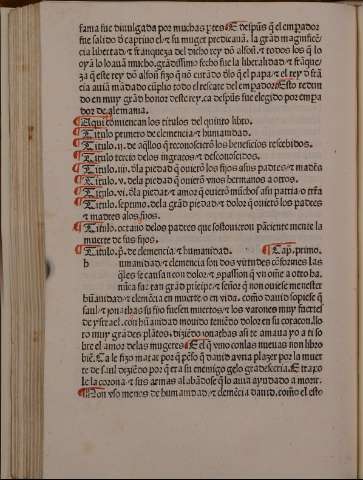 fama fue diuulgada por muchas ptes. E despũs q̃ el empador
fue salido d̃ captiuo el & su muger predicauã. la grãd magnificẽ
cia libertad & franqueza del dicho rey dõ alfoñ. & todos los q̃ lo
oyã lo loauã mucho. grãdissimo fecho fue la liberalidad & frãque
za q̃ este rey dõ alfoñ fizo q̃ nõ curãdo dlo q̃ el papa & el rey d̃ frã
cia auiã mãdado cũplio todo el rescate del empador. Esto redun
do en muy grãd honor deste rey. ca despũs fue elegido por empa
dor de alemania.
Aqui comiençan los titulos del quinto libro.
Titulo primero de clemencia & humanidad.
Titulo .ij. de aq̃llos q̃ reconoscierõ los beneficios rescebidos.
Titulo tercio delos ingratos & desconoscidos.
Titulo .iiij. dla piedad q̃ ouierõ los fijos asus padres & madrẽs
Titulo .v. dela piedad q̃ ouierõ vnos hermanos a otros.
Titulo .vi. dla piedad & amor q̃ ouierõ mũchos asu patria o trr̃a
Titulo .septimo. dela grãd piedad & dolor q̃ ouierõ los padres
& madres alos fijos.
Titulo. octauo delos padres que sostouieron paciente mente la
muerte de sus fijos.
Titulo .p̃. de clemencia & humanidad. Cap̃. primo.
b umanidad & clemencia son dos virtudes cõformes las
q̃les se causan con dolor & spassion q̃ vn ome a otro ha.
nũca fue tan grãd pricipe & señor q̃ non ouiese menester
humanidad & clemẽcia en muerte o en vida. como dauid sopiese q̃
saul & jonathas su fijo fuesen muertos & los varones muy fuertes
de ysrael. con humanidad mouido teniẽdo dolor en su coraçon. llo
ro muy grãdes plãtos. diziẽdo jonathas asi te amaua yo a ti so
bre el amor delas mugeres. E el q̃ vino conlas nueuas non libro
biẽ. Ca le fizo matar por q̃ pẽso q̃ dauid auria plazer por la muer
te de saul diziẽdo por q̃ era su enemigo gelo gradesceria. E traxo
le la corona & sus armas alabãdose q̃ lo auia ayudado a morir.
Non vso menos de humanidad & clemẽcia dauid. como el esto